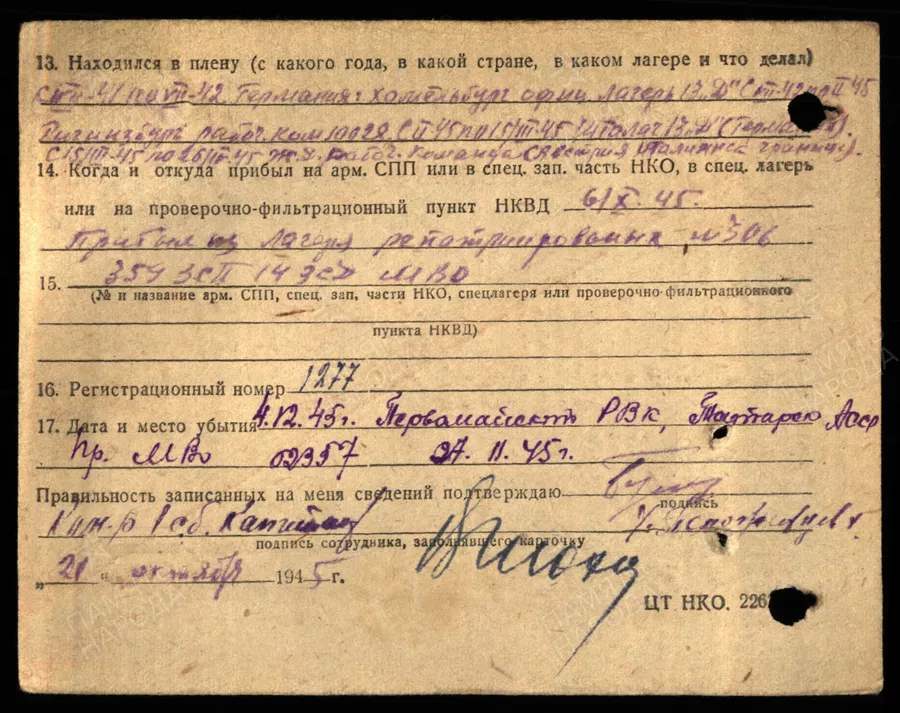 13. Находился в плену (с какого года, в какой стране, в каком лагере и что делал)
41 по VII-42 Германия г. Хамельбург офиц лагерь 13 "Д" С 42 по II 45
рабоч. ком 10028 С II 45 по 15/III-45 13 "Д" (Германия).
С 15/III-45 по 26/ 45 ж.д. рабоч. команда (Австрия границы).
14. Когда и откуда прибыл на арм. СПП или в спец. зап. часть НКО, в спец. лагерь
или на проверочно-фильтрационный пункт НКВД 6/X-45.
Прибыл из лагеря репатриированных №306
15. 354 ЗСП 14 ЗСД МВО
(№ и название арм. СПП, спец. зап. части НКО, спецлагеря или проверочно-фильтрационного
пункта НКВД)
16. Регистрационный номер 1277
17. Дата и место убытия 4.12.45г. Первомайский РВК, Татарск АССР
Пр. МВО 02357 27.11.45г.
Правильность записанных на меня сведений подтверждаю
подпись
Ком-р 1 сб.
подпись сотрудника, заполнявшего карточку
„21“ октября 1945 г.
ЦТ НКО. 226